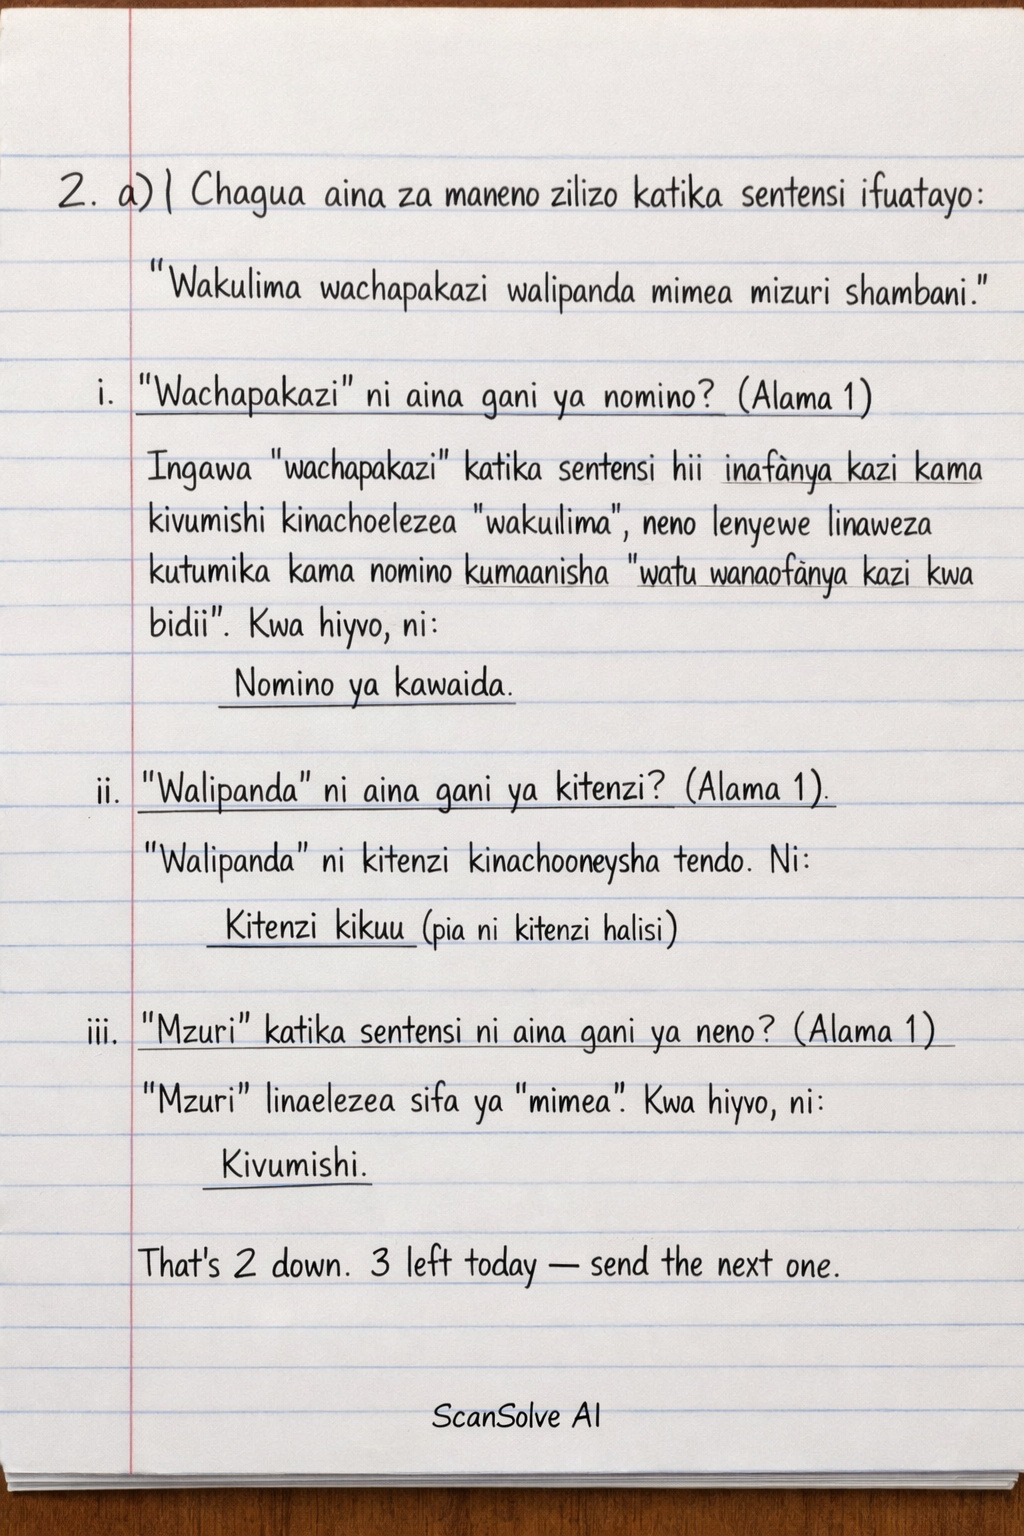 2. a) | Chagua aina za maneno zilizo katika sentensi ifuatayo:
"Wakulima wachapakazi walipanda mimea mizuri shambani."
i. "Wachapakazi" ni aina gani ya nomino? (Alama 1)
Ingawa "wachapakazi" katika sentensi hii inafànya kazi kama
kivumishi kinachoelezea "wakuilima", neno lenyewe linaweza
kutumika kama nomino kumaanisha "watu wanaofànya kazi kwa
bidii". Kwa hiyvo, ni:
Nomino ya kawaida.
ii. "Walipanda" ni aina gani ya kitenzi? (Alama 1).
"Walipanda" ni kitenzi kinachooneysha tendo. Ni:
Kitenzi kikuu (pia ni kitenzi halisi)
iii. "Mzuri" katika sentensi ni aina gani ya neno? (Alama 1)
"Mzuri" linaelezea sifa ya "mimea". Kwa hiyvo, ni:
Kivumishi.
That's 2 down. 3 left today — send the next one.
ScanSolve AI